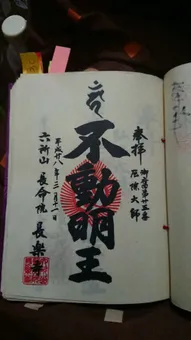 御府内第廿五番
奉拝
厄除大師
不動明王
平成廿八年三月十一日
六所山 長命院 長楽寺